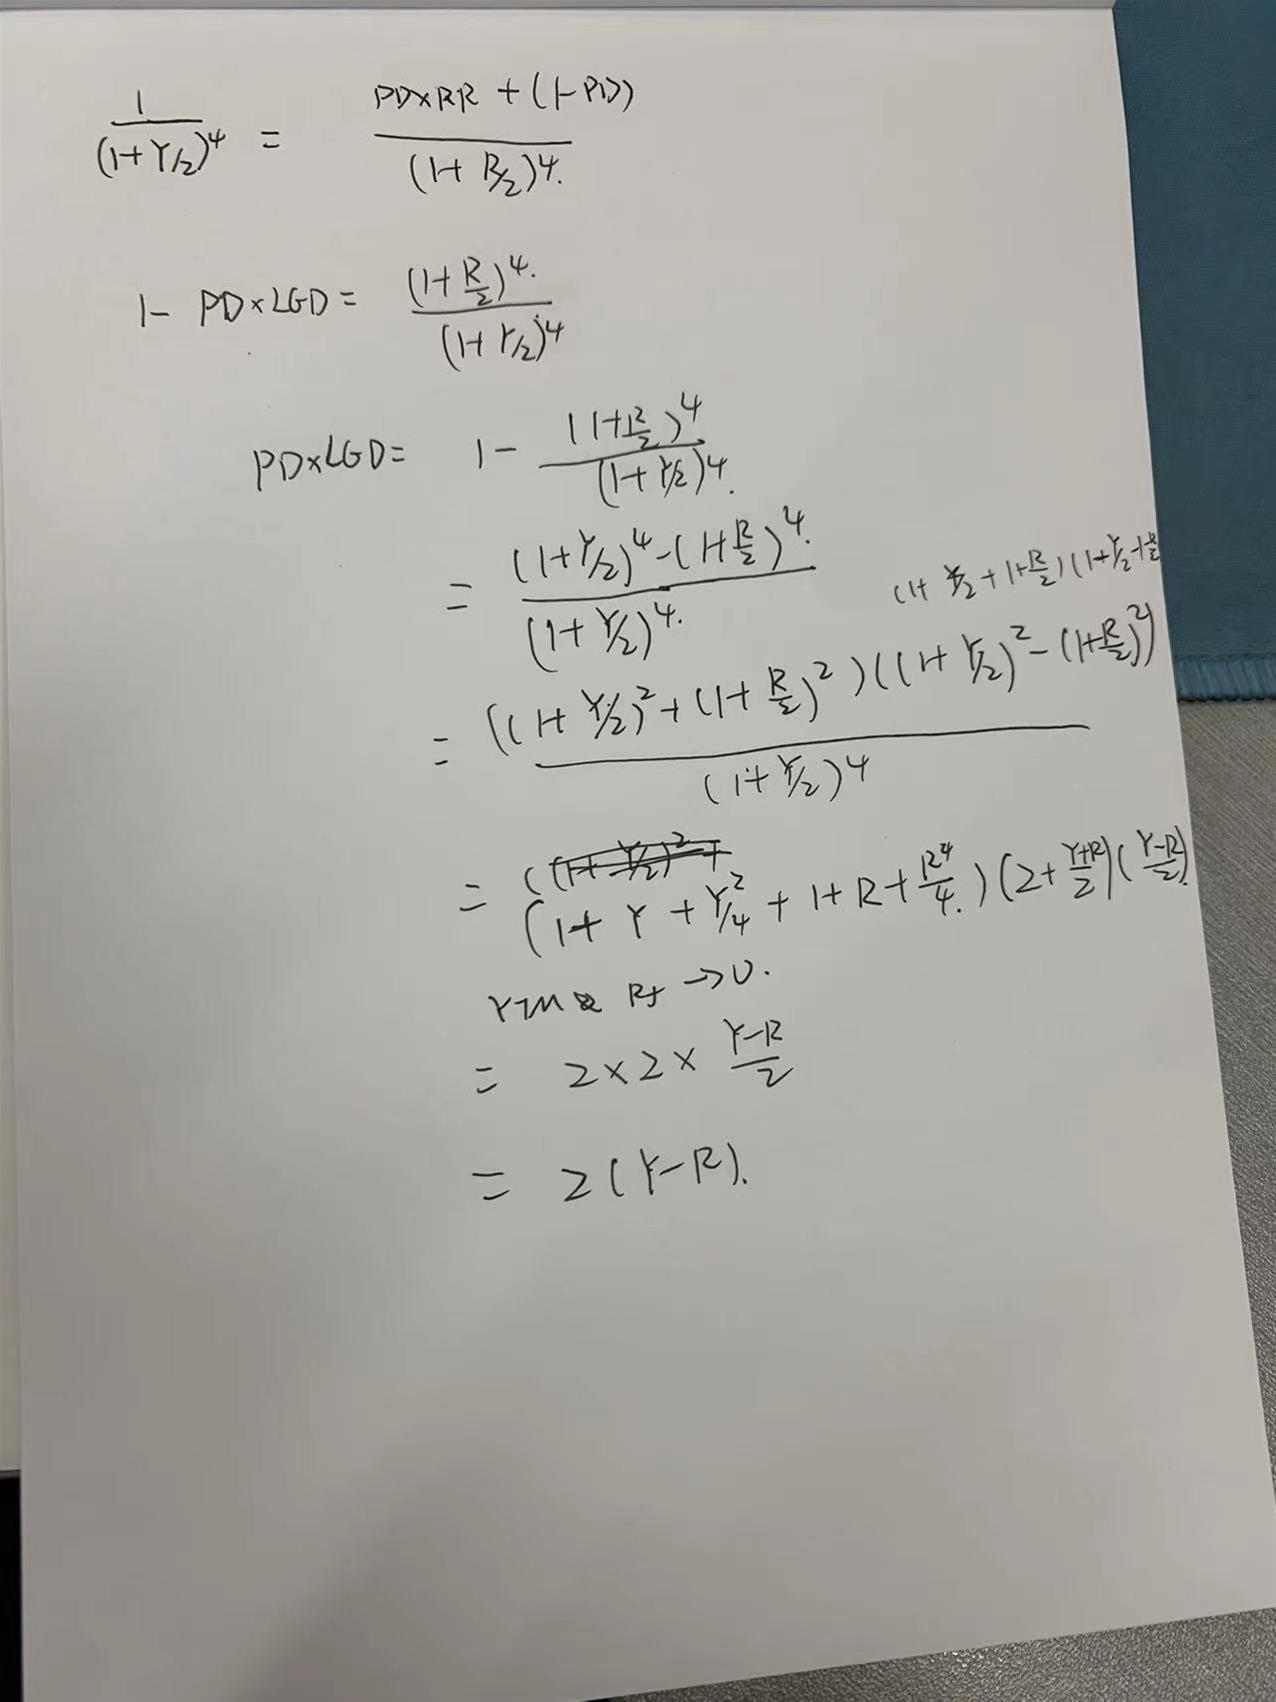 1/(1+Y/2)^4 = (PD×RR + (1-PD))/(1+R/2)^4.
1- PD×LGD = (1+R/2)^4./(1+Y/2)^4
PD×LGD = 1 - (1+R/2)^4/(1+Y/2)^4.
= ((1+Y/2)^4-(1+R/2)^4.)/(1+Y/2)^4.
(1+Y/2+1+R/2)(1+Y/2-1-R/2
= ((1+Y/2)^2+(1+R/2)^2)((1+Y/2)^2-(1+R/2)^2)/(1+Y/2)^4
= (1+Y+Y^2/4+1+R+R^4/4.)(2+(Y+R)/2)((Y-R)/2).
YTM & Rf →0.
= 2×2×(Y-R)/2
= 2(Y-R).